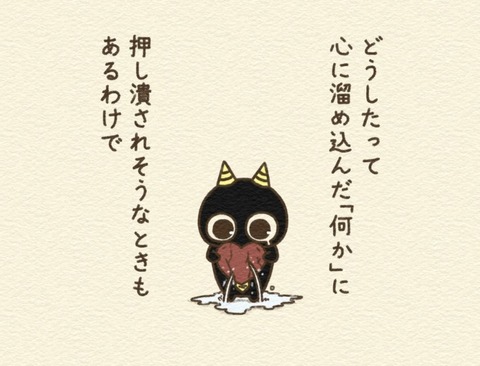 どうしたって
心に溜め込んだ「何か」に
押し潰されそうなときも
あるわけで